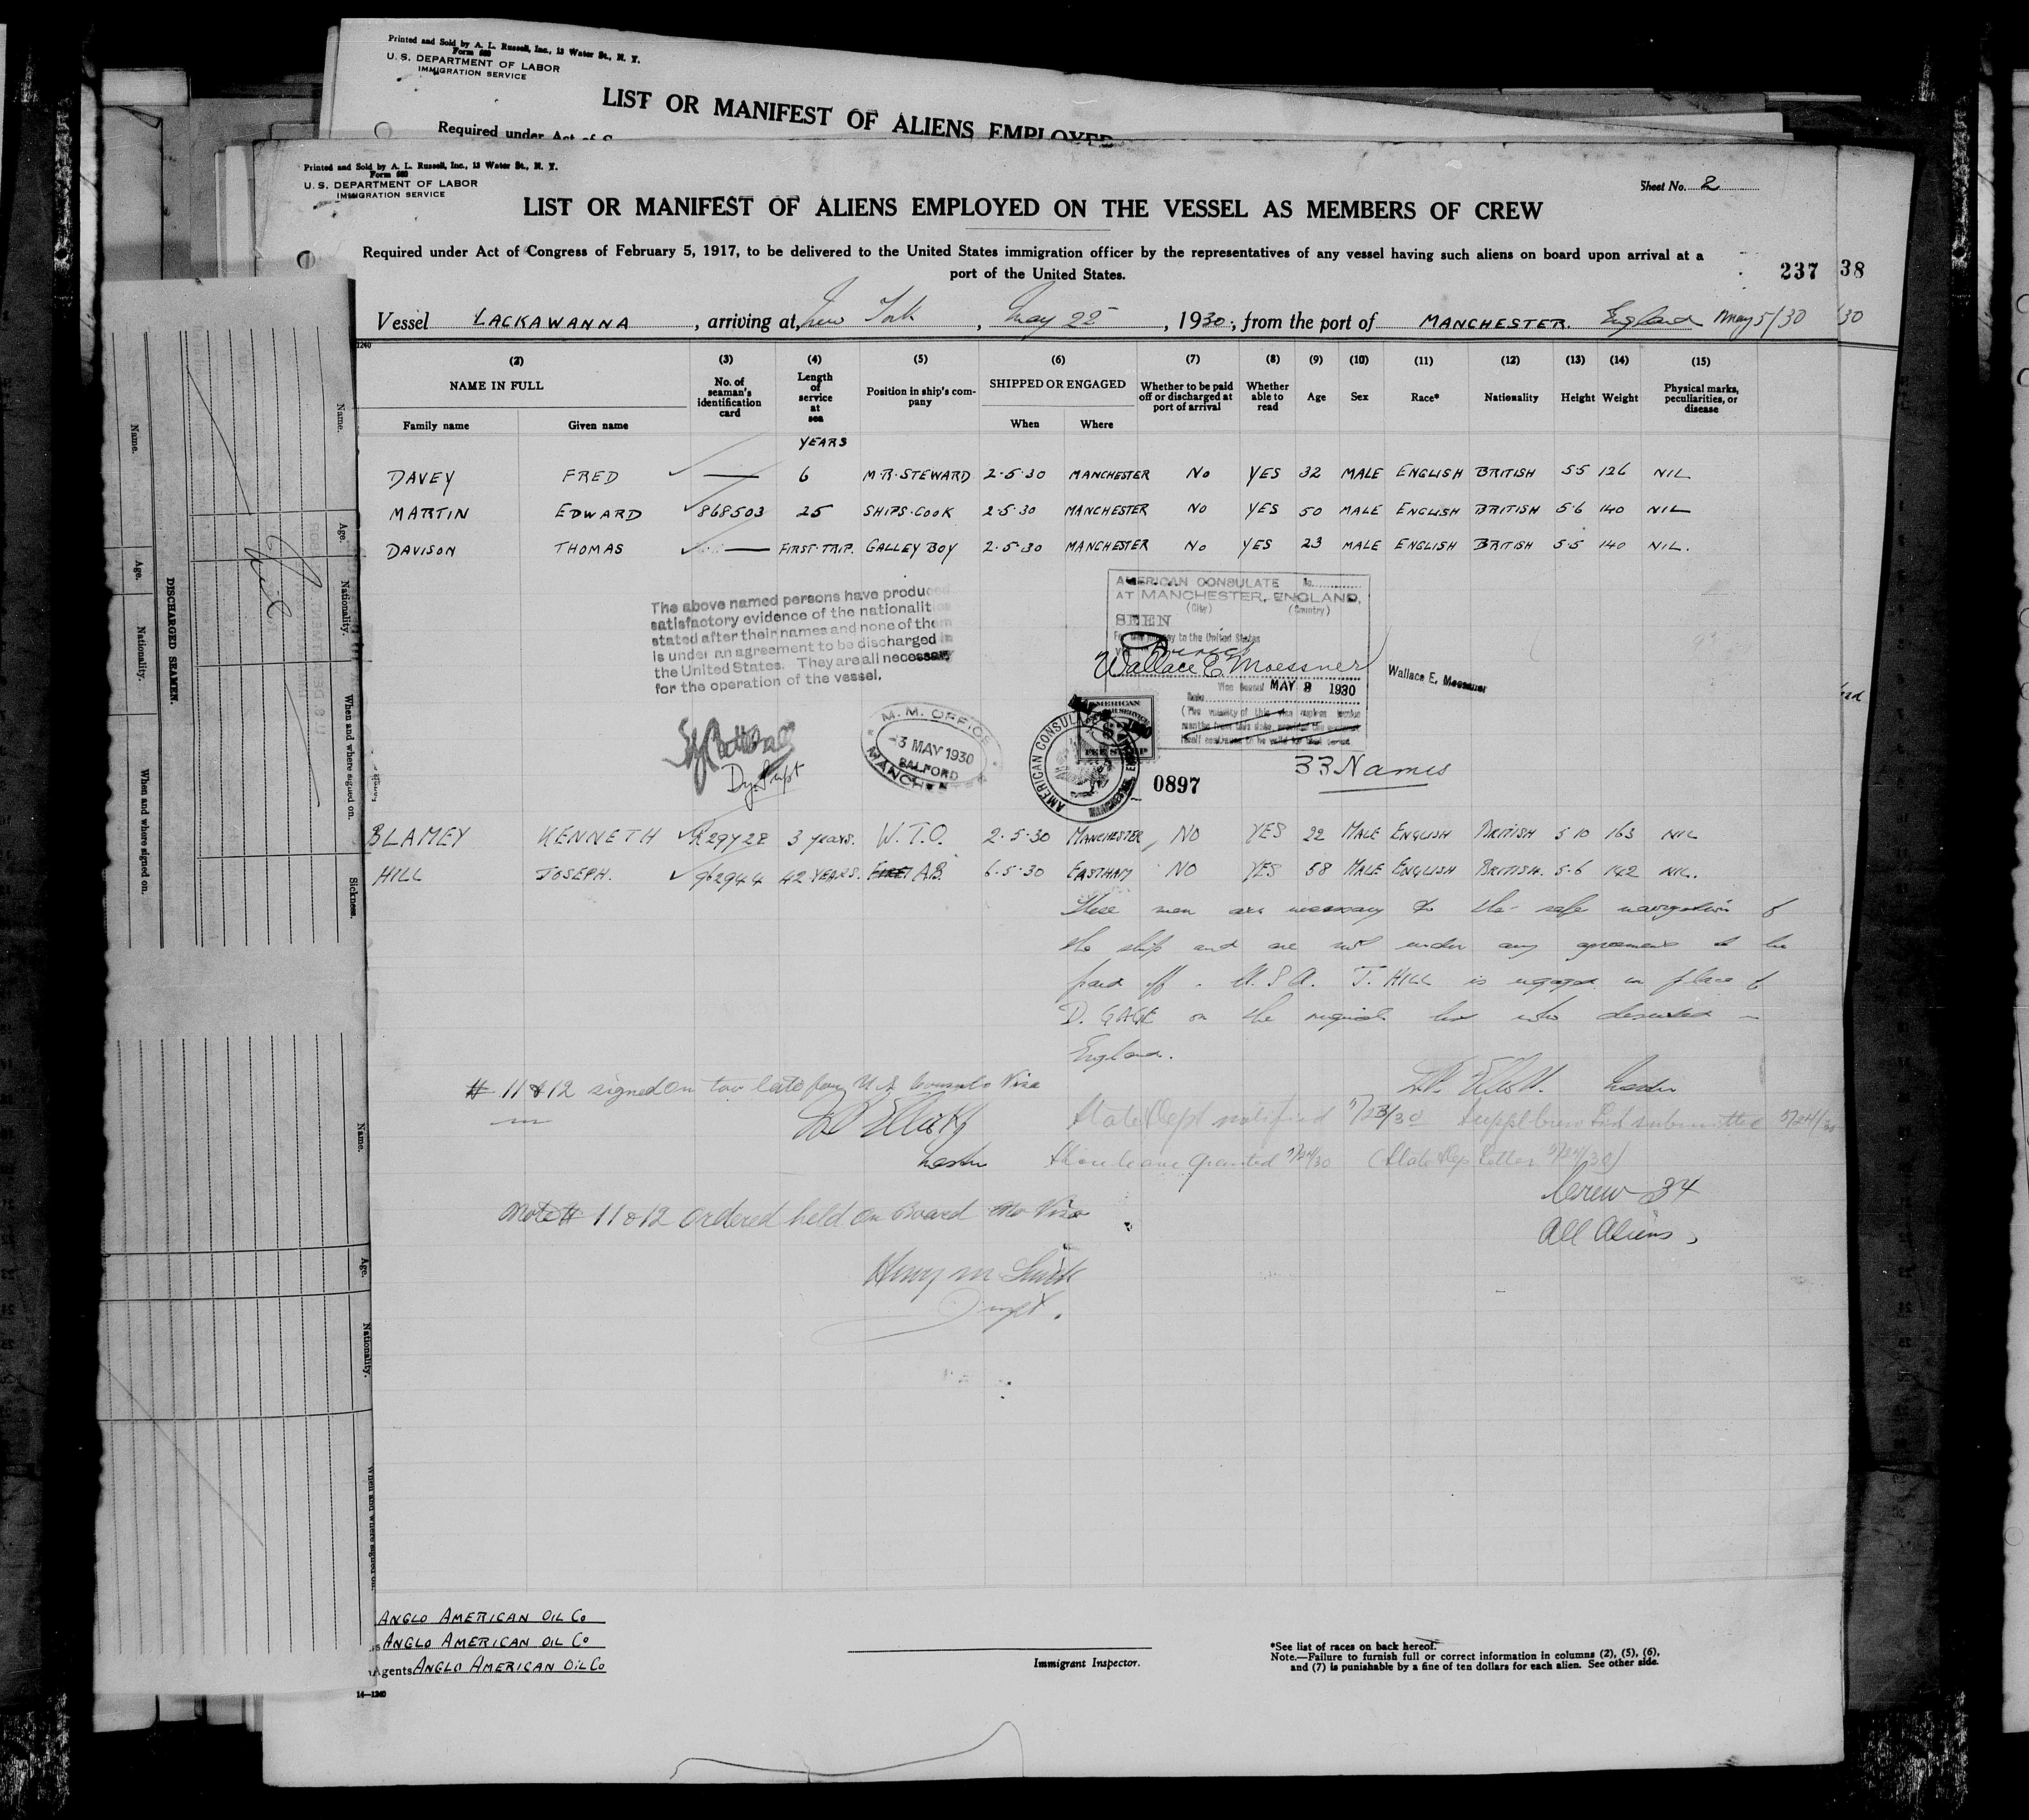 Printed and Sold by A. L. Russell, Inc., 13 Water St., N. Y.
Form 680
U. S. DEPARTMENT OF LABOR
IMMIGRATION SERVICE
LIST OR MANIFEST OF ALIENS EMPLOYED
Required under Act of C
Printed and Sold by A. L. Russell, Inc., 13 Water St., N. Y.
Form 680
U. S. DEPARTMENT OF LABOR
IMMIGRATION SERVICE
Sheet No. 2
LIST OR MANIFEST OF ALIENS EMPLOYED ON THE VESSEL AS MEMBERS OF CREW
Required under Act of Congress of February 5, 1917, to be delivered to the United States immigration officer by the representatives of any vessel having such aliens on board upon arrival at a
port of the United States.
237 38
Vessel LACKAWANNA, arriving at, New York, May 22, 1930, from the port of MANCHESTER. England May 5/30 30
1240
(2) (3) (4) (5) (6) (7) (8) (9) (10) (11) (12) (13) (14) (15)
NAME IN FULL No. of seaman's identification card Length of service at sea Position in ship's company SHIPPED OR ENGAGED Whether to be paid off or discharged at port of arrival Whether able to read Age Sex Race* Nationality Height Weight Physical marks, peculiarities, or disease
Family name Given name When Where
YEARS
DAVEY FRED — 6 M.R. STEWARD 2.5.30 MANCHESTER No YES 32 MALE ENGLISH BRITISH 5.5 126 NIL
MARTIN EDWARD 868503 25 SHIPS. COOK 2.5.30 MANCHESTER NO YES 50 MALE ENGLISH BRITISH 5.6 140 NIL
DAVISON THOMAS — FIRST TRIP. GALLEY BOY 2.5.30 MANCHESTER No YES 23 MALE ENGLISH BRITISH 5.5 140 NIL.
The above named persons have produced
satisfactory evidence of the nationalities
stated after their names and none of them
is under an agreement to be discharged in
the United States. They are all necessary
for the operation of the vessel.
Dy. Supt
M. M. OFFICE
3 MAY 1930
SALFORD
MANCHESTER
AMERICAN CONSULATE No.
AT MANCHESTER, ENGLAND,
(City) (Country)
SEEN
For the journey to the United States
Wallace E. Moessner
Wallace E. Moessner
Vice Consul MAY 3 1930
Date
(The validity of this visa expires twelve
months from this date, provided the passport
itself continues to be valid for that period.
AMERICAN CONSULATE
AMERICAN
FEE STAMP
0897
33 Names
BLAMEY KENNETH R29728 3 years. W.T.O. 2.5.30 MANCHESTER, NO YES 22 MALE ENGLISH BRITISH 5 10 163 NIL
HILL JOSEPH. 962944 42 YEARS. A.B. 6.5.30 EASTHAM NO YES 58 MALE ENGLISH BRITISH. 5.6 142 NIL.
These men are necessary to the safe navigation of
the ship and are not under any agreement to be
paid off. U.S.A. J. HILL is engaged in place of
D. GAGE on the original list who deserted in
England.
Master
# 11 & 12 signed on too late for U S Consuls Visa
Master
State Dept notified 5/23/30 Suppl. Crew List submitted 5/24/30
Shore leave granted 5/24/30 (State Dep Letter 5/24/30)
Crew 34
All Aliens,
Note # 11 & 12 ordered held on Board no Visa
Henry M Smith
Inspt.
ANGLO AMERICAN OIL Co
ANGLO AMERICAN OIL Co
Agents ANGLO AMERICAN OIL Co
14—1240
Immigrant Inspector.
*See list of races on back hereof.
Note.—Failure to furnish full or correct information in columns (2), (5), (6),
and (7) is punishable by a fine of ten dollars for each alien. See other side.
DISCHARGED SEAMEN.
Name. Age. Nationality. When and where signed on.
Name. Age. Nationality. When and where signed on. Sickness.
Name. Age. Nationality. When and where signed on.